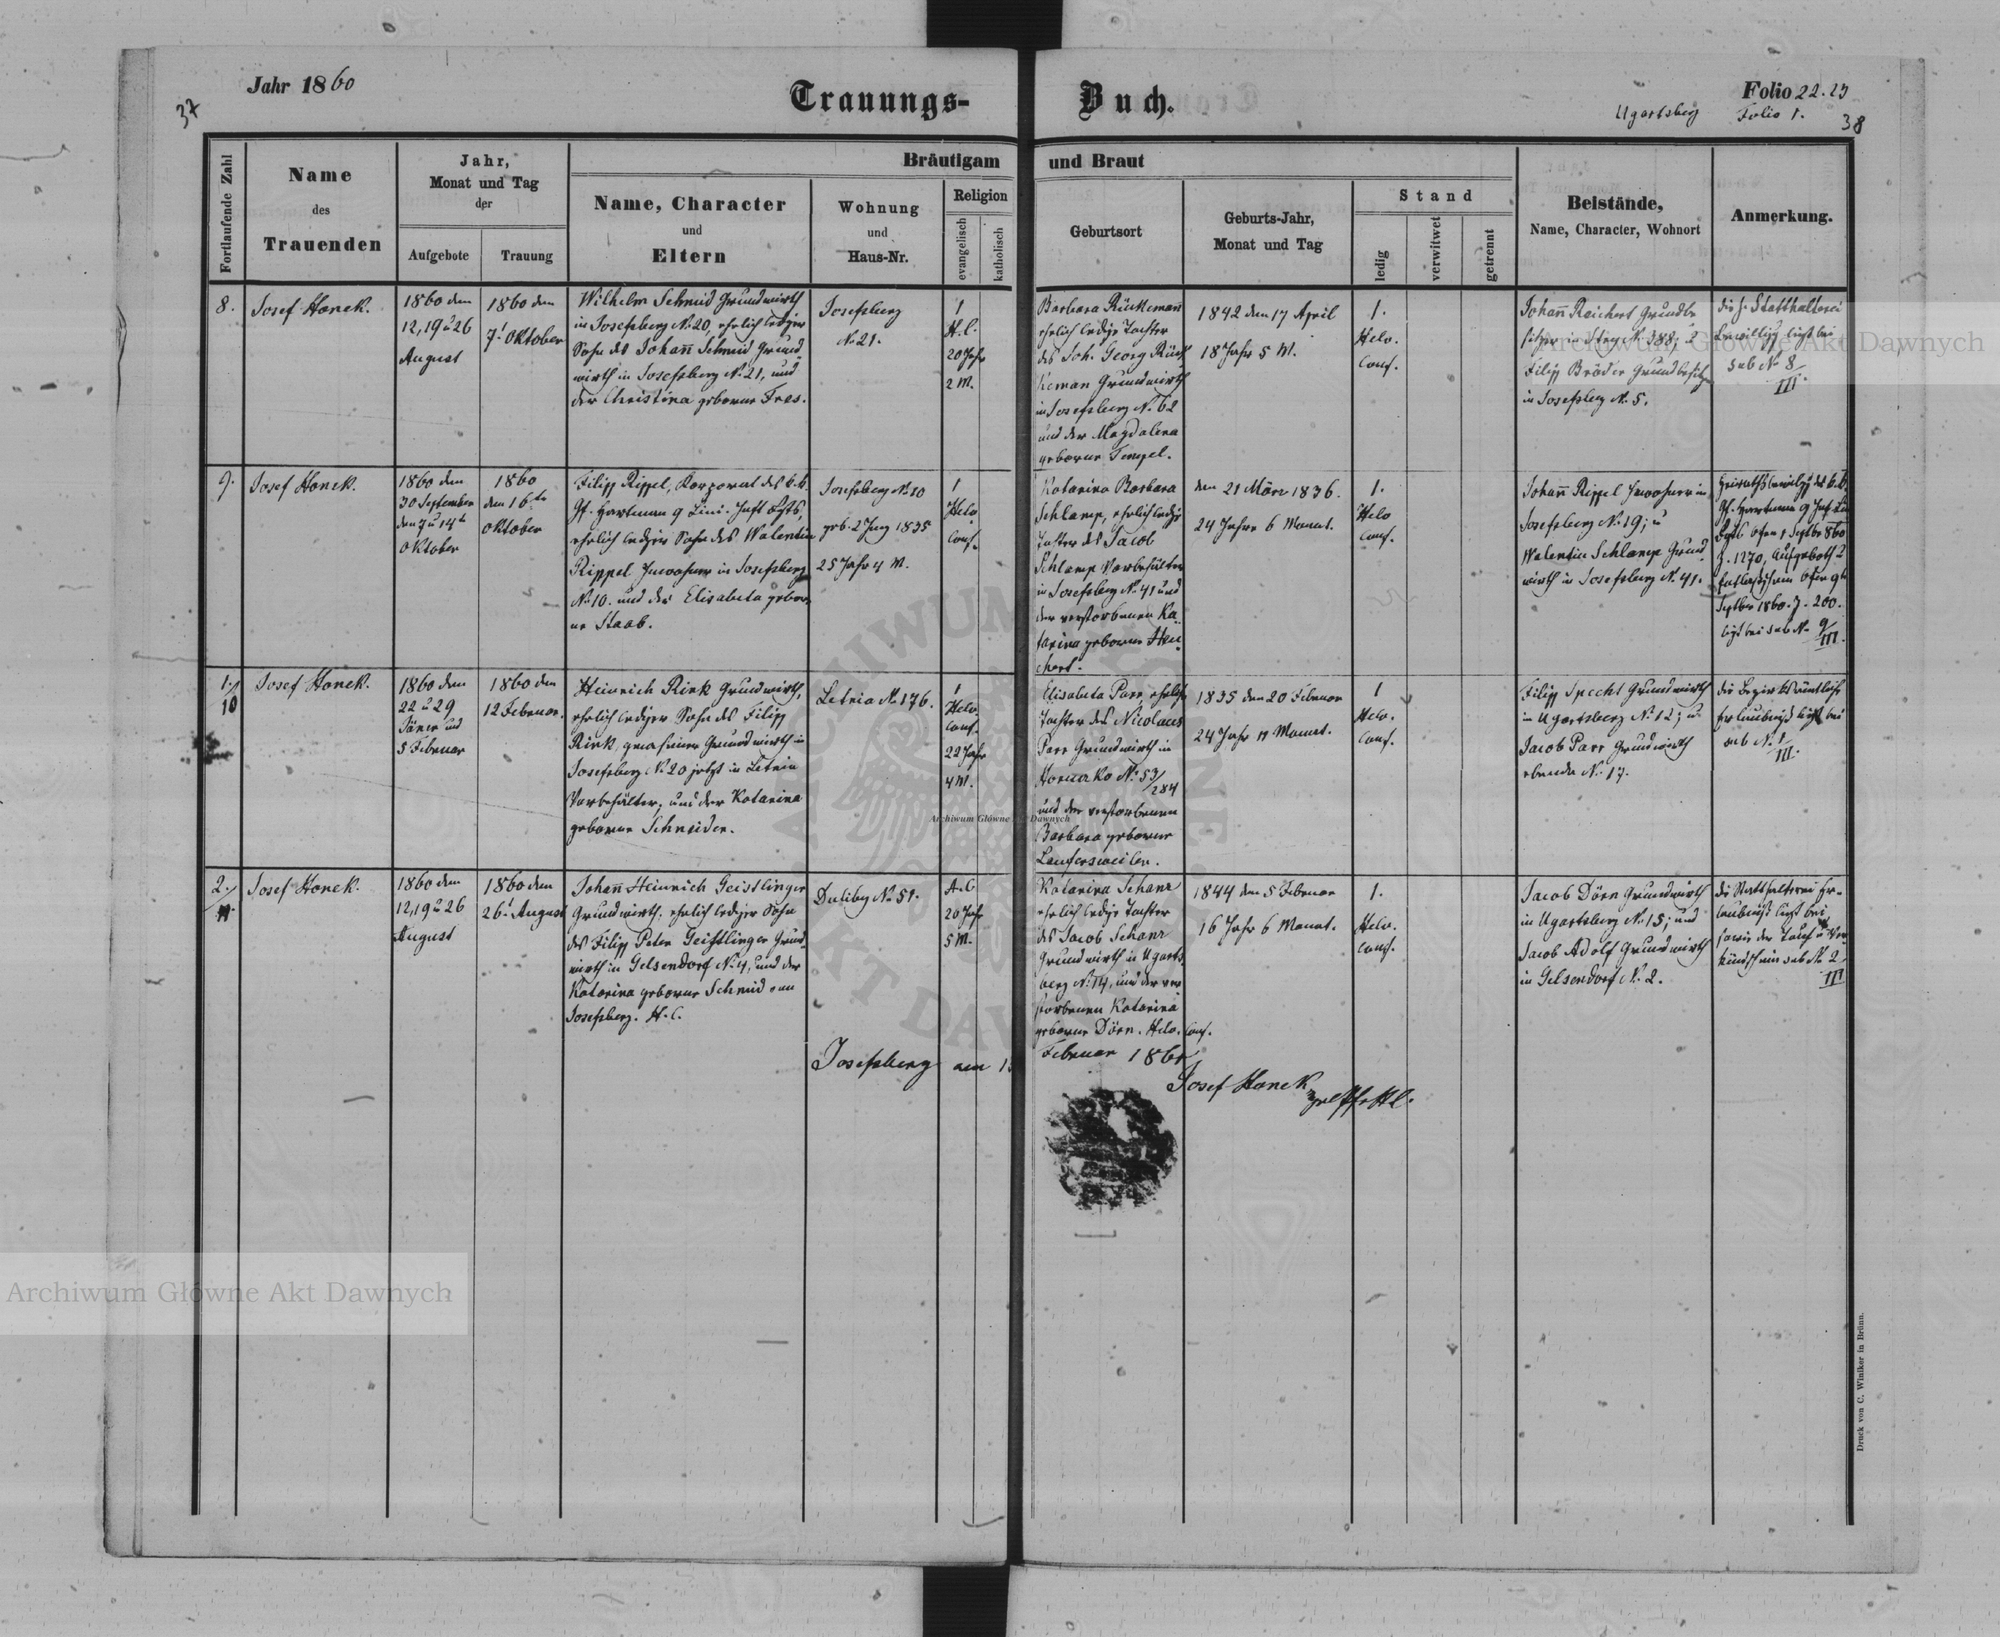 Jahr 1860
Trauungs-
Buch.
Folio 22.23
Ugartsberg Folio 1.
37
38
Fortlaufende Zahl
Name
des
Trauenden
Jahr,
Monat und Tag
der
Aufgebote
Trauung
Bräutigam
und Braut
Name, Character
und
Eltern
Wohnung
und
Haus-Nr.
Religion
evangelisch
katholisch
Geburtsort
Geburts-Jahr,
Monat und Tag
Stand
ledig
verwitwet
getrennt
Beistände,
Name, Character, Wohnort
Anmerkung.
8.
Josef Honek.
1860 den
12, 19 u 26
August
1860 den
7. Oktober
Wilhelm Schmid Grundwirth
in Josefsberg N. 20, ehrlich lediger
Sohn des Johann Schmid Grund-
wirth in Josefsberg N. 21, und
der Christina geborne Fres.
Josefsberg
N. 21.
1
H. C.
20 Jahr
2 M.
Barbara Rückemann
ehrlich ledige Tochter
des Joh. Georg Rück
keman Grundwirth
in Josefsberg N. 62
und der Magdalena
geborne Tempel.
1842 den 17 April
18 Jahr 5 M.
1.
Helv.
Conf.
Johann Reichert Grundbe
sitzer in Stry N. 388, u
Filipp Bröder Grundbesitzer
in Josefsberg N. 5.
die h. Statthalterei
Bewillgg liegt bei
sub N. 8/III.
9.
Josef Honek.
1860 den
30 September
den 7 u 14t
Oktober
1860
den 16te
Oktober
Filipp Rippel, Korporal des k. k.
Gf. Hartman 9 Lini. Inft Rgts,
ehrlich lediger Sohn des Walentin
Rippel Inwohner in Josefsberg
N. 10. und der Elisabeta gebor
ne Staab.
Josefsberg N. 10
geb. 2 Juny 1835
25 Jahr 4 M.
1
Helv.
Conf.
Katarina Barbara
Schlamp, ehrlich ledige
Tochter des Jacob
Schlamp Vorbehälter
in Josefsberg N. 41 und
der verstorbenen Ka
tarina geborne Heu
chert.
den 21 März 1836.
24 Jahre 6 Monat.
1.
Helv
Conf.
Johann Rippel Inwohner in
Josefsberg N. 19; u
Walentin Schlamp Grund
wirth in Josefsberg N. 41.
Z. 1270, Aufgeboth u
Septber 1860. Z. 200.
liegt bei sub N. 9/III.
1./10
Josef Honek.
1860 den
22 u 29
Jäner und
5 Februar
1860 den
12 Februar.
Heinrich Rink Grundwirth,
ehrlich lediger Sohn des Filipp
Rink, gewesener Grundwirth in
Josefsberg N. 20 jetzt in Letnia
Vorbehälter; und der Katarina
geborne Schneider.
Letnia N. 176.
1
Helv.
Conf.
22 Jahr
4 M.
Elisabeta Parr, ehrliche
Tochter des Nicolaus
Parr Grundwirth in
Horucko N. 53/284
und der verstorbenen
Barbara geborne
Laufersweiler.
1835 den 20 Februar
24 Jahr 11 Monat.
1
Helv.
Conf.
Filipp Specht Grundwirth
in Ugartsberg N. 12; u
Jacob Parr Grundwirth
ebenda N. 17.
die Bezirksämtliche
Erlaubniß liegt bei
sub N. 1/III.
2./11.
Josef Honek.
1860 den
12, 19 u 26
August
1860 den
26. August
Johann Heinrich Geistlinger
Grundwirth, ehrlich lediger Sohn
des Filipp Peter Geistlinger Grund-
wirth in Gelsendorf N. 4, und der
Katarina geborne Schmid aus
Josefsberg. H. C.
Duliby N. 51.
A. C
20 Jahr
5 M.
Katarina Schanz
ehrlich ledige Tochter
des Jacob Schanz
Grundwirth in Ugarts
berg N. 14, und der ver
storbenen Katarina
geborne Dörn. Helv. Conf.
1844 den 5 Februar
16 Jahr 6 Monat.
1.
Helv.
Conf.
Jacob Dörn Grundwirth
in Ugartsberg N. 15; und
Jacob Adolf Grundwirth
in Gelsendorf N. 2.
die Statthalterei Er-
laubniß liegt bei
sowie der Tauf u Ver
kündschein sub N. 2/III
Josefsberg am
Februar 1861
Josef Honek
Druck von C. Winiker in Brünn.
Archiwum Główne Akt Dawnych
Archiwum Główne Akt Dawnych
Archiwum Główne Akt Dawnych